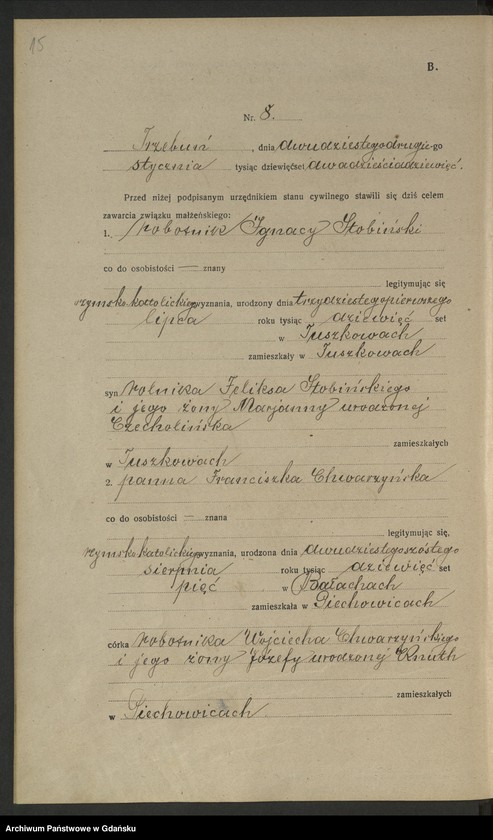 15
B.
Nr. 8.
Trzebuń, dnia dwudziestegodrugie-go
stycznia tysiąc dziewięćset dwadzieściadziewięć.
Przed niżej podpisanym urzędnikiem stanu cywilnego stawili się dziś celem
zawarcia związku małżeńskiego:
1. robotnik Ignacy Słobiński
co do osobistości — znany
legitymując się
rzymsko katolickiego wyznania, urodzony dnia trzydziestegopierwszego
lipca roku tysiąc dziewięć set
w Juszkowach
zamieszkały w Juszkowach
syn rolnika Feliksa Słobińskiego
i jego żony Marjanny urodzonej
Czecholińska
zamieszkałych
w Juszkowach
2. panna Franciszka Chwarzyńska
co do osobistości — znana
legitymując się,
rzymsko katolickiego wyznania, urodzona dnia dwudziestegoszóstego
sierpnia roku tysiąc dziewięć set
pięć w Bałachach
zamieszkała w Piechowicach
córka robotnika Wojciecha Chwarzyńskiego
i jego żony Józefy urodzonej Knuth
zamieszkałych
w Piechowicach
Archiwum Państwowe w Gdańsku